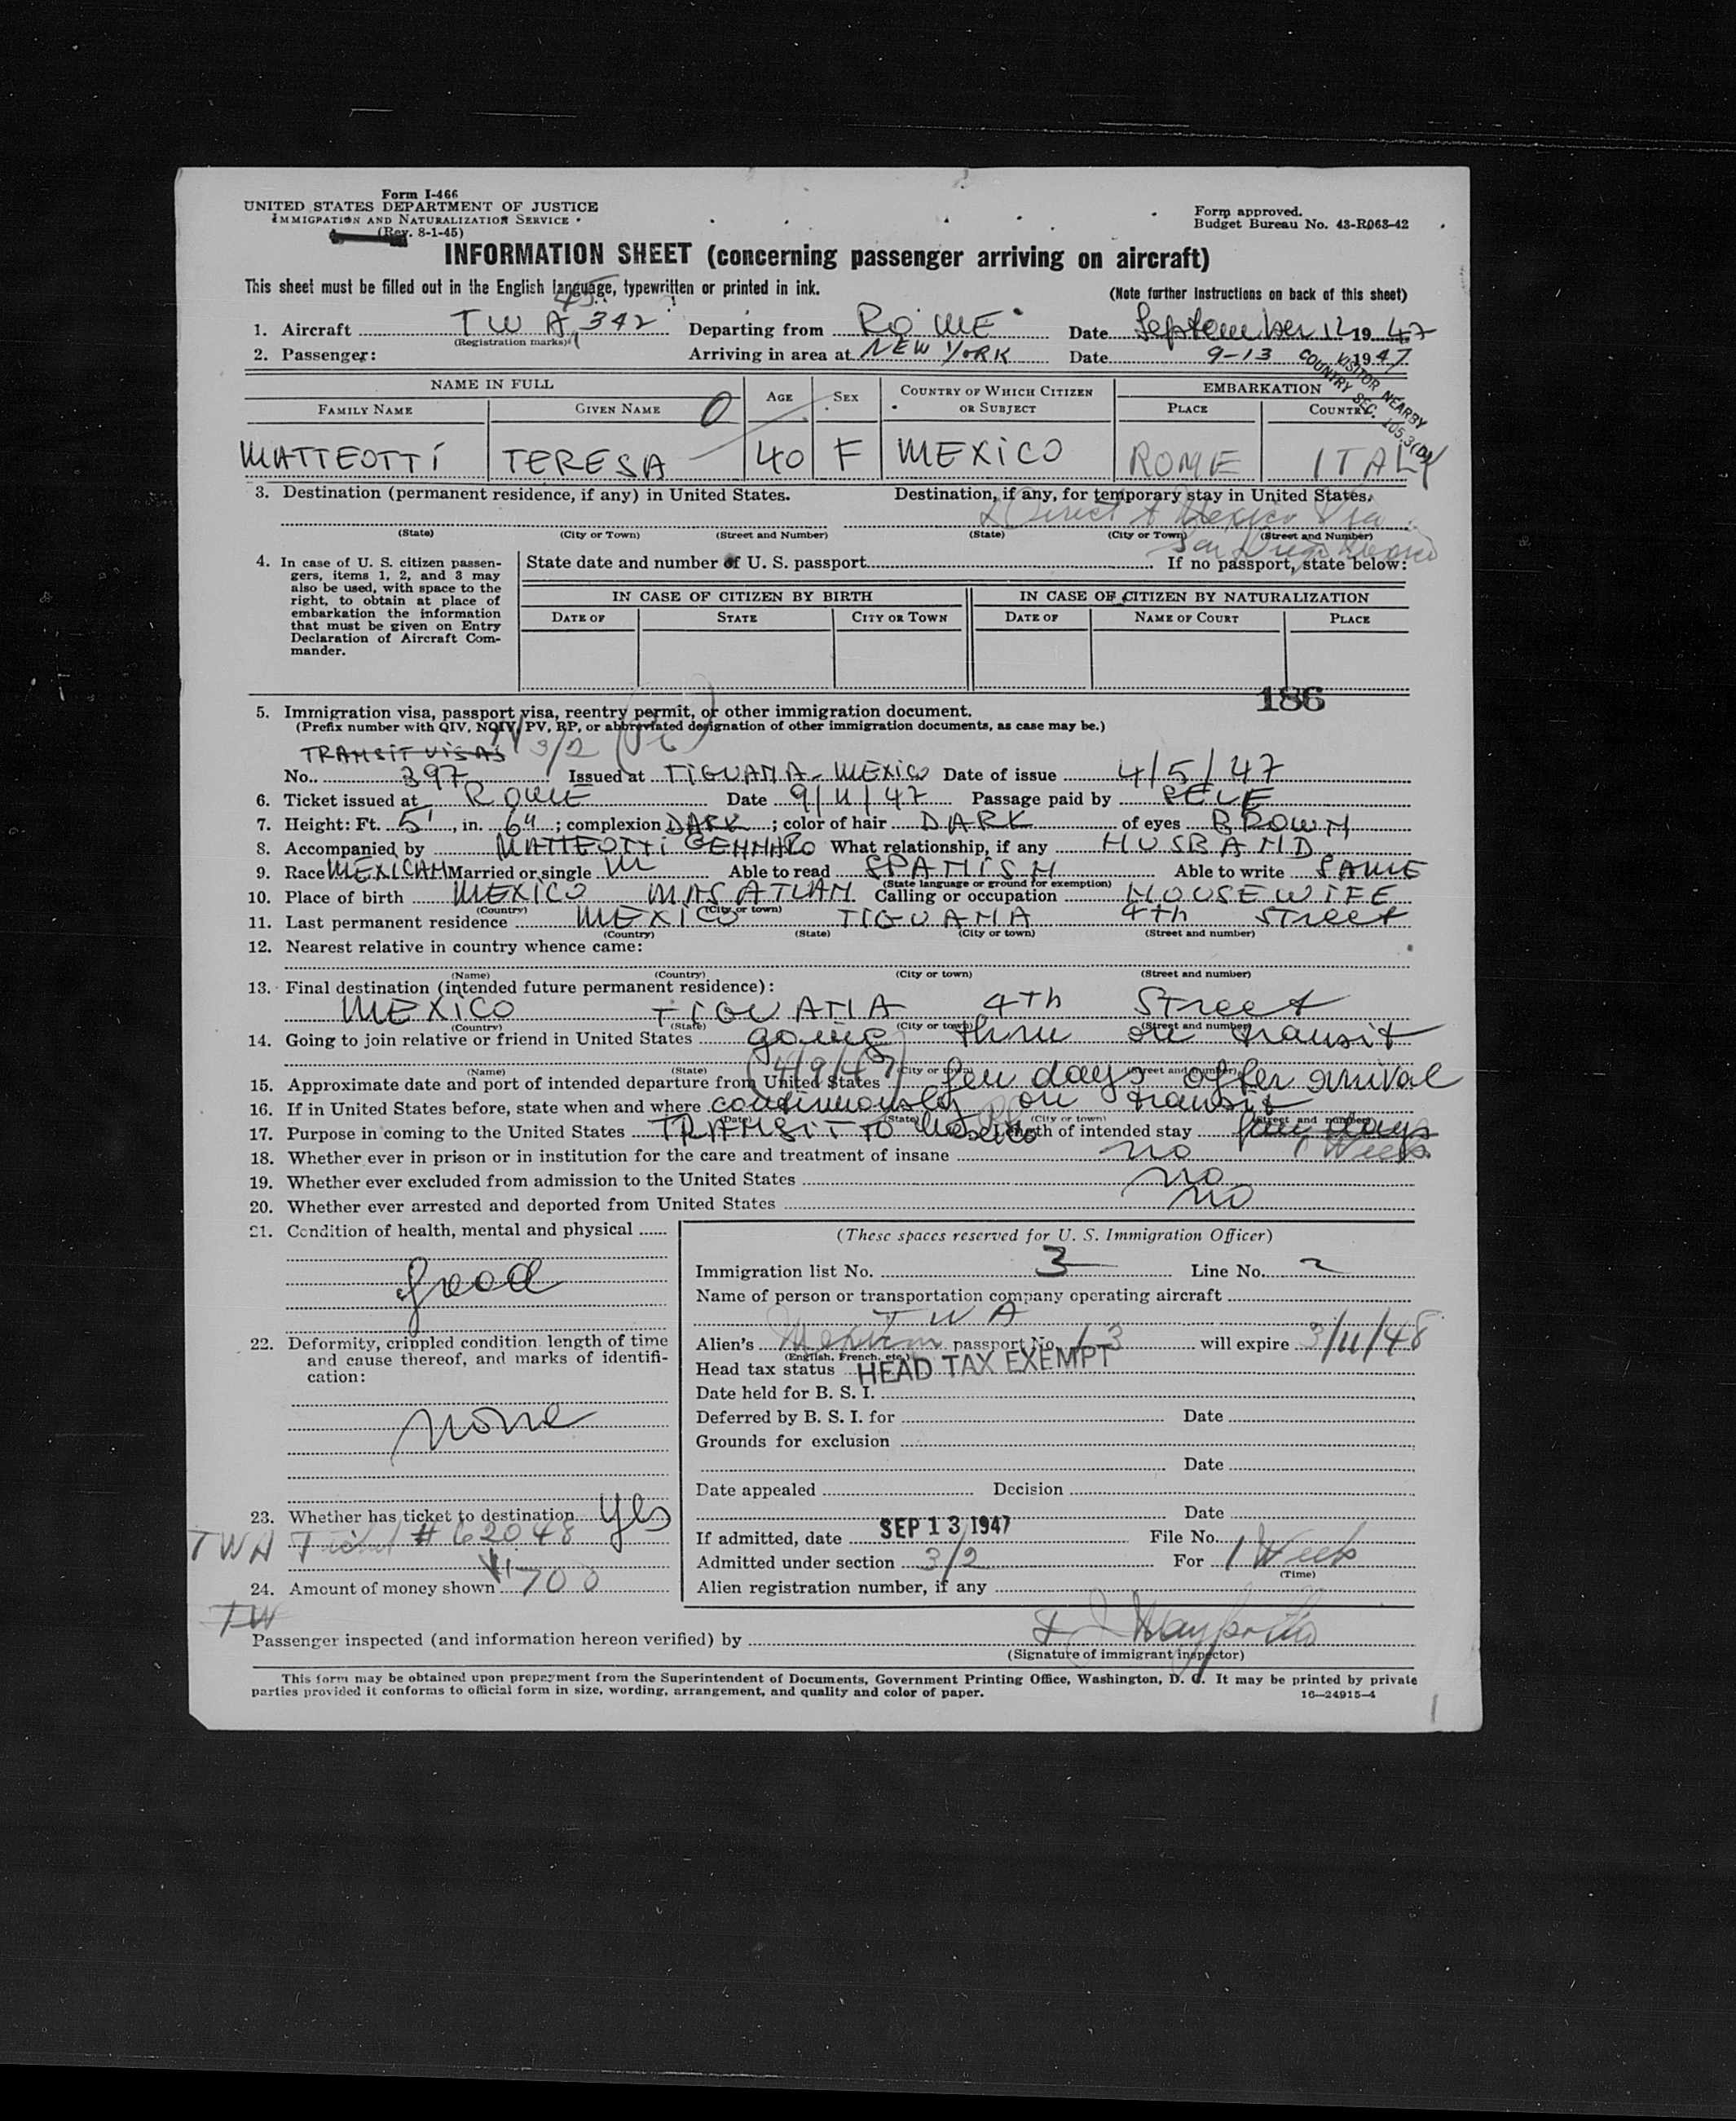 Form I-466
UNITED STATES DEPARTMENT OF JUSTICE
IMMIGRATION AND NATURALIZATION SERVICE
(Rev. 8-1-45)
Form approved.
Budget Bureau No. 43-R063-42
INFORMATION SHEET (concerning passenger arriving on aircraft)
This sheet must be filled out in the English language, typewritten or printed in ink.
(Note further instructions on back of this sheet)
1. Aircraft TWA 342 Departing from ROME Date September 12 1947
(Registration marks)
2. Passenger: Arriving in area at NEW YORK Date 9-13 1947
VISITOR NEARBY
COUNTRY SEC. 105.3(D)
NAME IN FULL AGE SEX COUNTRY OF WHICH CITIZEN OR SUBJECT EMBARKATION
FAMILY NAME GIVEN NAME PLACE COUNTRY
MATTEOTTI TERESA 40 F MEXICO ROME ITALY
3. Destination (permanent residence, if any) in United States. Destination, if any, for temporary stay in United States.
Direct to Mexico Via
(State) (City or Town) (Street and Number) (State) (City or Town) (Street and Number)
San Diego Mexico
4. In case of U. S. citizen passengers, items 1, 2, and 3 may also be used, with space to the right, to obtain at place of embarkation the information that must be given on Entry Declaration of Aircraft Commander.
State date and number of U. S. passport If no passport, state below:
IN CASE OF CITIZEN BY BIRTH IN CASE OF CITIZEN BY NATURALIZATION
DATE OF STATE CITY OR TOWN DATE OF NAME OF COURT PLACE
186
5. Immigration visa, passport visa, reentry permit, or other immigration document.
(Prefix number with QIV, NQIV, PV, RP, or abbreviated designation of other immigration documents, as case may be.)
TRANSIT VISAS 3/2
No. 397 Issued at TIGUANA - MEXICO Date of issue 4/5/47
6. Ticket issued at ROME Date 9/11/47 Passage paid by SELF
7. Height: Ft. 5', in. 6"; complexion DARK; color of hair DARK of eyes BROWN
8. Accompanied by MATTEOTTI GENNARO What relationship, if any HUSBAND
9. Race MEXICAN Married or single M Able to read SPANISH Able to write SAME
(State language or ground for exemption)
10. Place of birth MEXICO MASATLAN Calling or occupation HOUSEWIFE
(Country) (City or town)
11. Last permanent residence MEXICO TIGUANA 4th Street
(Country) (State) (City or town) (Street and number)
12. Nearest relative in country whence came:
(Name) (Country) (City or town) (Street and number)
13. Final destination (intended future permanent residence):
MEXICO TIGUANA 4th Street
(Country) (State) (City or town) (Street and number)
14. Going to join relative or friend in United States going thru on transit
(Name) (State) (City or town) (Street and number)
(4/9/47)
15. Approximate date and port of intended departure from United States few days after arrival
16. If in United States before, state when and where continuously on transit
(Date) (State) (City or town) (Street and number)
17. Purpose in coming to the United States TRANSIT TO Mexico Length of intended stay few days
1 Week
18. Whether ever in prison or in institution for the care and treatment of insane no
19. Whether ever excluded from admission to the United States no
20. Whether ever arrested and deported from United States no
21. Condition of health, mental and physical
good
22. Deformity, crippled condition length of time and cause thereof, and marks of identification:
none
23. Whether has ticket to destination yes
TWA Ticket # 62048
24. Amount of money shown 700
TW
(These spaces reserved for U. S. Immigration Officer)
Immigration list No. 3 Line No. 2
Name of person or transportation company operating aircraft
TWA
Alien's Mexican passport No. 13 will expire 3/11/48
(English, French, etc.)
Head tax status HEAD TAX EXEMPT
Date held for B. S. I.
Deferred by B. S. I. for Date
Grounds for exclusion
Date
Date appealed Decision
Date
If admitted, date SEP 13 1947 File No.
Admitted under section 3/2 For 1 Week
(Time)
Alien registration number, if any
Passenger inspected (and information hereon verified) by
(Signature of immigrant inspector)
This form may be obtained upon prepayment from the Superintendent of Documents, Government Printing Office, Washington, D. C. It may be printed by private
parties provided it conforms to official form in size, wording, arrangement, and quality and color of paper.
16—24915-4